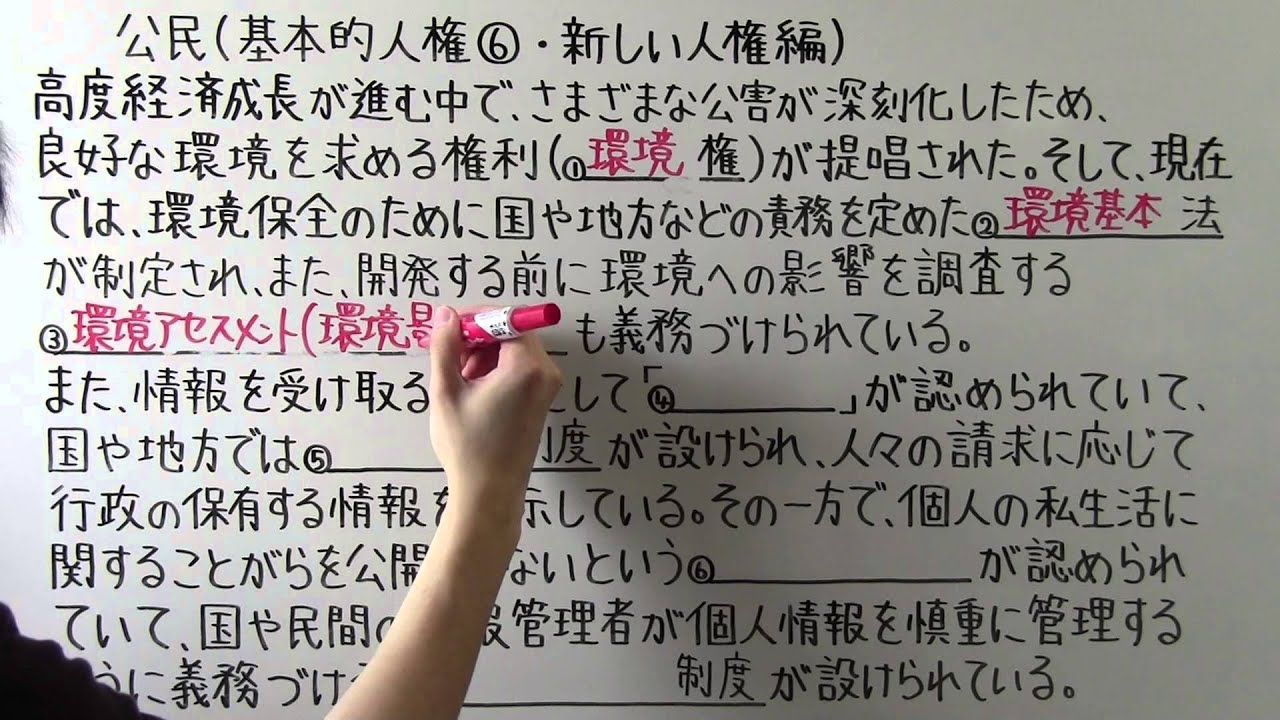 公民(基本的人権⑥・新しい人権編)
高度経済成長が進む中で、さまざまな公害が深刻化したため、
良好な環境を求める権利(①環境 権)が提唱された。そして、現在
では、環境保全のために国や地方などの責務を定めた②環境基本 法
が制定され、また、開発する前に環境への影響を調査する
③環境アセスメント(環境 も義務づけられている。
また、情報を受け取る として「④ 」が認められていて、
国や地方では⑤ 制度 が設けられ、人々の請求に応じて
行政の保有する情報を 示している。その一方で、個人の私生活に
関することがらを公開 ないという⑥ が認められ
ていて、国や民間の 報管理者が個人情報を慎重に管理する
うに義務づける 制度 が設けられている。